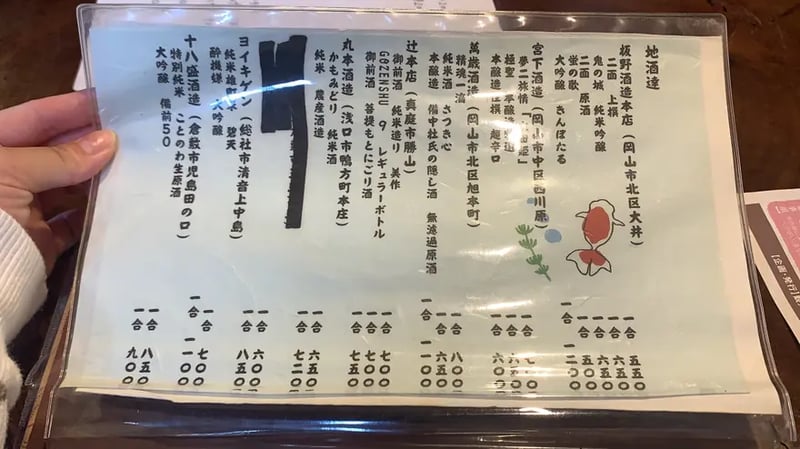 地酒達
板野酒造本店（岡山市北区大井）
二面 上撰 一合 五五〇
鬼の城 純米吟醸 一合 六五〇
二面 原酒 一合 六五〇
螢の歌 五五〇
大吟醸 きんぼたる 一合 一二〇〇
宮下酒造（岡山市中区西川原）
夢二旅情 一合
極聖 本醸造 一合
本醸造 超辛口 一合 六〇〇
萬歳酒造（岡山市北区旭本町）
精魂一滴 一合 八〇〇
純米酒 さつき心 一合 六五〇
本醸造 備中杜氏の隠し酒 無濾過原酒 一合 一一〇〇
辻本店（真庭市勝山）
御前酒 純米造り 美作 一合 七〇〇
GOZENSHU 9 レギュラーボトル 一合 七〇〇
御前酒 菩提もとにごり酒 一合 七〇〇
丸本酒造（浅口市鴨方町本庄）
かもみどり 純米酒 一合 六五〇
純米 農産酒造 一合 七二〇
一合 六〇〇
一合 八五〇
ヨイキゲン（総社市清音上中島）
純米雄町 碧天 一合 七〇〇
酔機嫌 大吟醸 一合 一一〇〇
十八盛酒造（倉敷市児島田の口）
特別純米 ことのわ生原酒 一合 八五〇
大吟醸 備前50 一合 九〇〇
【企画・発行】